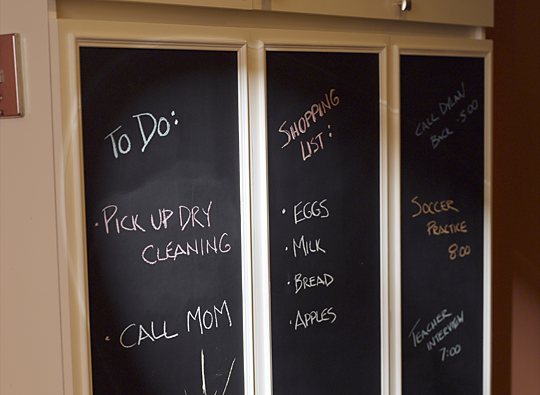 To Do:
• PICK UP DRY
CLEANING
• CALL MOM
SHOPPING
LIST:
• EGGS
• MILK
• BREAD
• APPLES
CALL DYLAN
BACK 5:00
SOCCER
PRACTICE
8:00
TEACHER
INTERVIEW
7:00